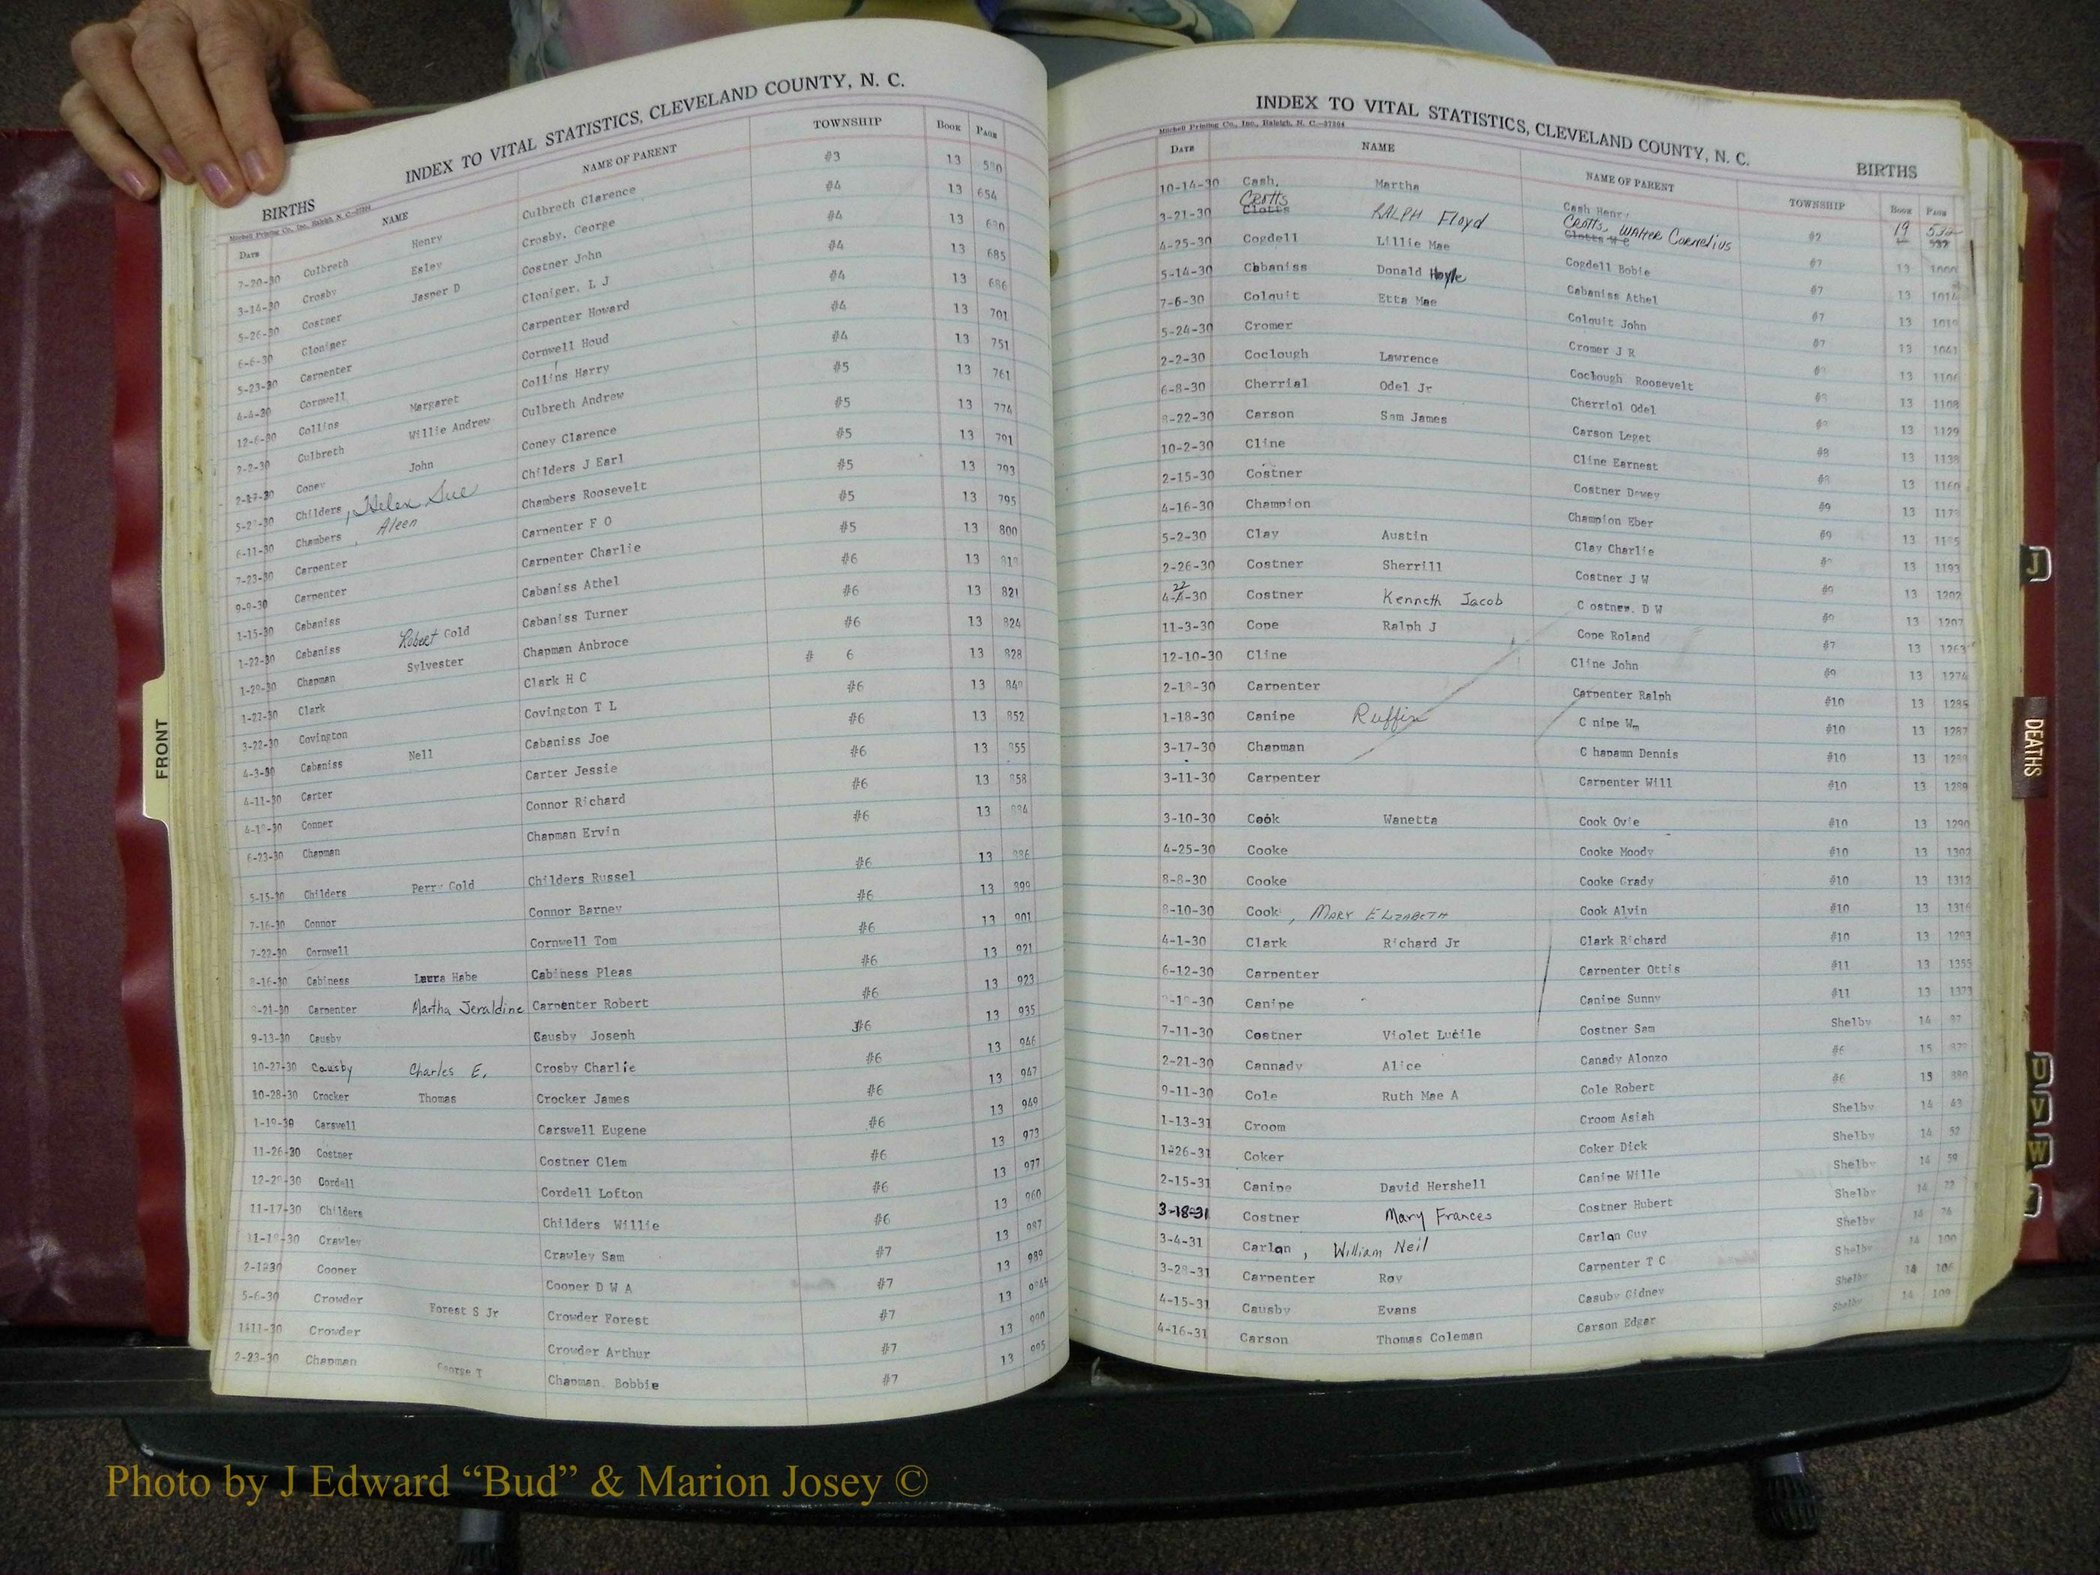 INDEX TO VITAL STATISTICS, CLEVELAND COUNTY, N. C.
BIRTHS
Mitchell Printing Co., Inc., Raleigh, N. C.
DATE NAME NAME OF PARENT TOWNSHIP BOOK PAGE
7-20-30 Culbreth Henry Culbreth Clarence #3 13
3-14-30 Crosby Esley Crosby, George #4 13 654
5-26-30 Costner Jasper D Costner John #4 13
6-6-30 Cloniger Cloniger, L J #4 13 685
5-23-30 Carpenter Carpenter Howard #4 13 686
4-4-30 Cornwell Cornwell Houd #4 13 701
12-6-30 Collins Margaret Collins Harry #4 13 751
2-2-30 Culbreth Willie Andrew Culbreth Andrew #5 13 761
Coney John Coney Clarence #5 13 774
Childers, Helen Sue Childers J Earl #5 13 791
6-11-30 Chambers, Aleen Chambers Roosevelt #5 13 793
7-23-30 Carpenter Carpenter F O #5 13 795
9-9-30 Carpenter Carpenter Charlie #5 13 800
1-15-30 Cabaniss Cabaniss Athel #6 13
1-22-30 Cabaniss Robert Gold Cabaniss Turner #6 13 821
1-29-30 Chapman Sylvester Chapman Anbroce #6 13 824
1-27-30 Clark Clark H C # 6 13 828
3-22-30 Covington Covington T L #6 13
4-3-30 Cabaniss Nell Cabaniss Joe #6 13 852
4-11-30 Carter Carter Jessie #6 13 855
Conner Connor Richard #6 13 858
6-23-30 Chapman Chapman Ervin #6 13
5-15-30 Childers Perry Gold Childers Russel #6 13
7-16-30 Connor Connor Barney #6 13
7-22-30 Cornwell Cornwell Tom #6 13 901
8-16-30 Cabiness Laura Habe Cabiness Pleas #6 13 921
Carpenter Martha Jeraldine Carpenter Robert #6 13 923
9-13-30 Causby Causby Joseph #6 13 935
10-27-30 Causby Charles E. Crosby Charlie #6 13 946
10-28-30 Crocker Thomas Crocker James #6 13 947
1-19-30 Carswell Carswell Eugene #6 13 949
11-26-30 Costner Costner Clem #6 13 973
Cordell Cordell Lofton #6 13 977
11-17-30 Childers Childers Willie #6 13
Crawley Crawley Sam #7 13 987
Cooper Cooper D W A #7 13 989
5-6-30 Crowder Forest S Jr Crowder Forest #7 13
Crowder Crowder Arthur #7 13
2-23-30 Chapman George T Chapman. Bobbie #7 13 995
INDEX TO VITAL STATISTICS, CLEVELAND COUNTY, N. C.
BIRTHS
Mitchell Printing Co., Inc., Raleigh, N. C.
DATE NAME NAME OF PARENT TOWNSHIP BOOK PAGE
10-14-30 Cash, Martha Cash Henry
3-21-30 Crotts Clotts RALPH Floyd Crotts, Walter Cornelius #2 19
4-25-30 Cogdell Lillie Mae Cogdell Bobie #7 13
5-14-30 Cabaniss Donald Hoyle Cabaniss Athel #7 13 1014
7-6-30 Colquit Etta Mae Colquit John #7 13
5-24-30 Cromer Cromer J R #7 13
2-2-30 Coclough Lawrence Coclough Roosevelt 13
6-8-30 Cherrial Odel Jr Cherriol Odel 13 1108
Carson Sam James Carson Leget 13 1129
10-2-30 Cline Cline Earnest #8 13 1138
2-15-30 Costner Costner Dewey 13 1160
4-16-30 Champion Champion Eber #9 13
5-2-30 Clay Austin Clay Charlie #9 13
2-26-30 Costner Sherrill Costner J W 13 1193
4-22-30 Costner Kenneth Jacob Costner. D W #9 13 1202
11-3-30 Cope Ralph J Cope Roland 13 1207
12-10-30 Cline Cline John #7 13 1263
Carpenter Carpenter Ralph #9 13 1274
1-18-30 Canipe Ruffin C nipe Wm #10 13 1285
3-17-30 Chapman Chapamn Dennis #10 13 1287
3-11-30 Carpenter Carpenter Will #10 13
#10 13 1289
3-10-30 Cook Wanetta Cook Ovie #10 13 1290
4-25-30 Cooke Cooke Moody #10 13 1302
8-8-30 Cooke Cooke Grady #10 13 1312
8-10-30 Cook, MARY ELZABETH Cook Alvin #10 13 1316
4-1-30 Clark Richard Jr Clark Richard #10 13 1293
6-12-30 Carpenter Carpenter Ottis #11 13 1355
Canipe Canipe Sunny #11 13 1373
7-11-30 Costner Violet Lucile Costner Sam Shelby 14
2-21-30 Cannady Alice Canady Alonzo #6 15
9-11-30 Cole Ruth Mae A Cole Robert #6 13 880
1-13-31 Croom Croom Asiah Shelby 14 43
1-26-31 Coker Coker Dick Shelby 14 52
2-15-31 Canipe David Hershell Canipe Wille Shelby 14 59
3-18-31 Costner Mary Frances Costner Hubert Shelby 14 72
3-4-31 Carlan, William Neil Carlan Guy Shelby 14 76
Carpenter Roy Carpenter T C Shelby 14 100
4-15-31 Causby Evans Casuby Gidney Shelby 14 106
4-16-31 Carson Thomas Coleman Carson Edgar Shelby 14 109
FRONT
J
DEATHS
U
V
W
Photo by J Edward “Bud” & Marion Josey ©